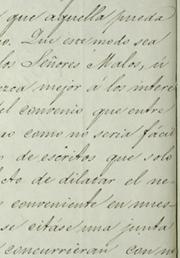 que aquella pueda
o. Que ese modo sea
los Señores Matos, ú
ezca mejor á los intere
del convenio que entre
go como no seria fácil
o de escritos que solo
cto de dilatar el ne
s conveniente en nues
se citáse una junta
concurrieran con